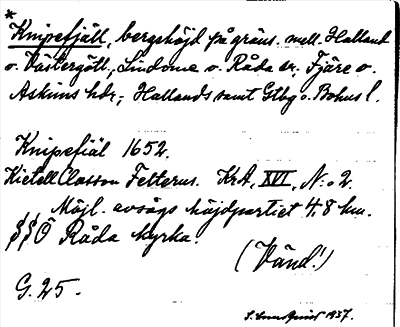 *
Knipefjäll, bergshöjd på gräns. mell. Halland
o. Västergötl., Lindome o. Råda sr. Fjäre o.
Askims hdr, Hallands samt Gtbg o. Bohus l.
Knipefiäl 1652.
Kietell Classon Felterus. KrA, XVI, N:o 2.
Möjl. avsågs höjdpartiet 4,8 km.
§§Ö Råda kyrka.
(Vänd!)
G. 25.
1937.